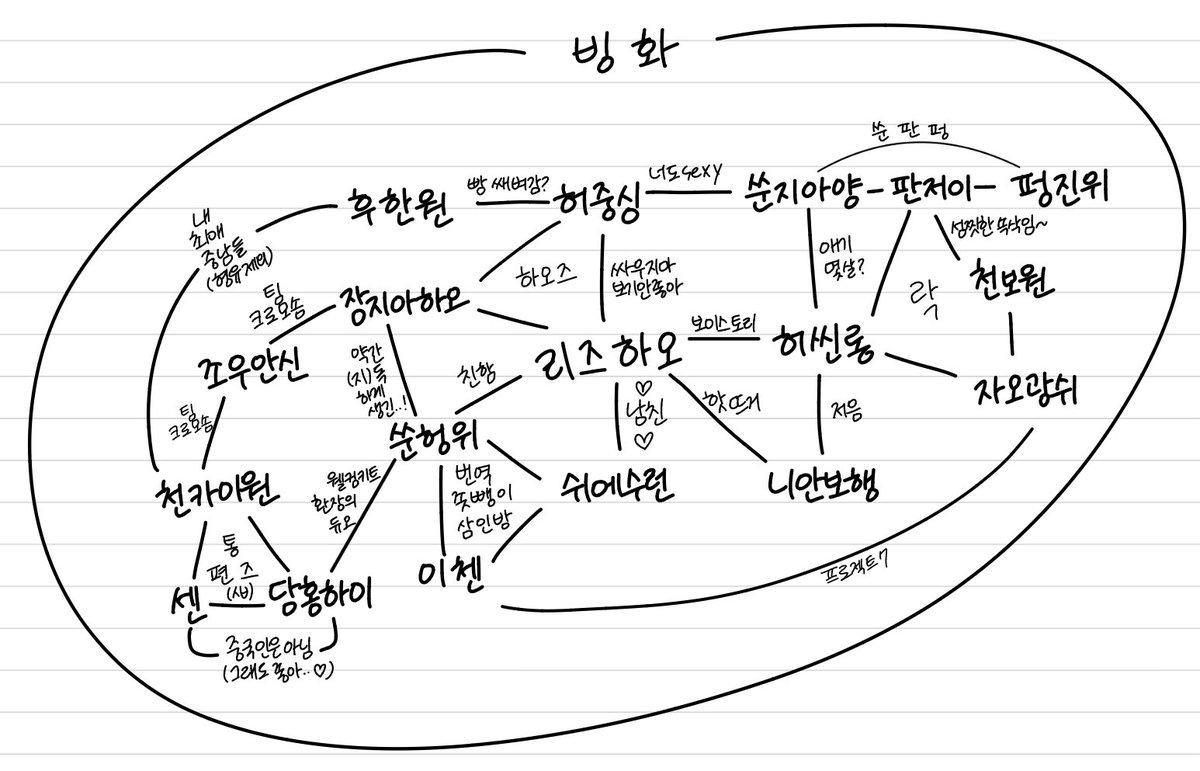 빙화
쑨 판 펑
후한원
빵 쌔벼감?
허중싱
너도 sexy
쑨지아양 - 판저이 - 펑진위
내
최애
중남들
(형유제외)
하오즈
싸우지마
보기안좋아
애기
몇살?
섬찟한 쓱삭임~
락
천보원
팀
크로오솜
장지아하오
조우안신
약간
(지)독
하게
생긴..!
친항
리즈하오
보이스토리
허씬롱
자오광쉬
팀
크로오솜
♡
남친
♡
핫뜨거
저음
쑨헝위
천카이원
웰컴키트
환장의
듀오
번역
쪼빵이
삼인방
쉬에수런
니안보행
통
편 즈
(사비)
센
당홍하이
이첸
프로젝트7
중국인은아님
(그래도좋아..♡)